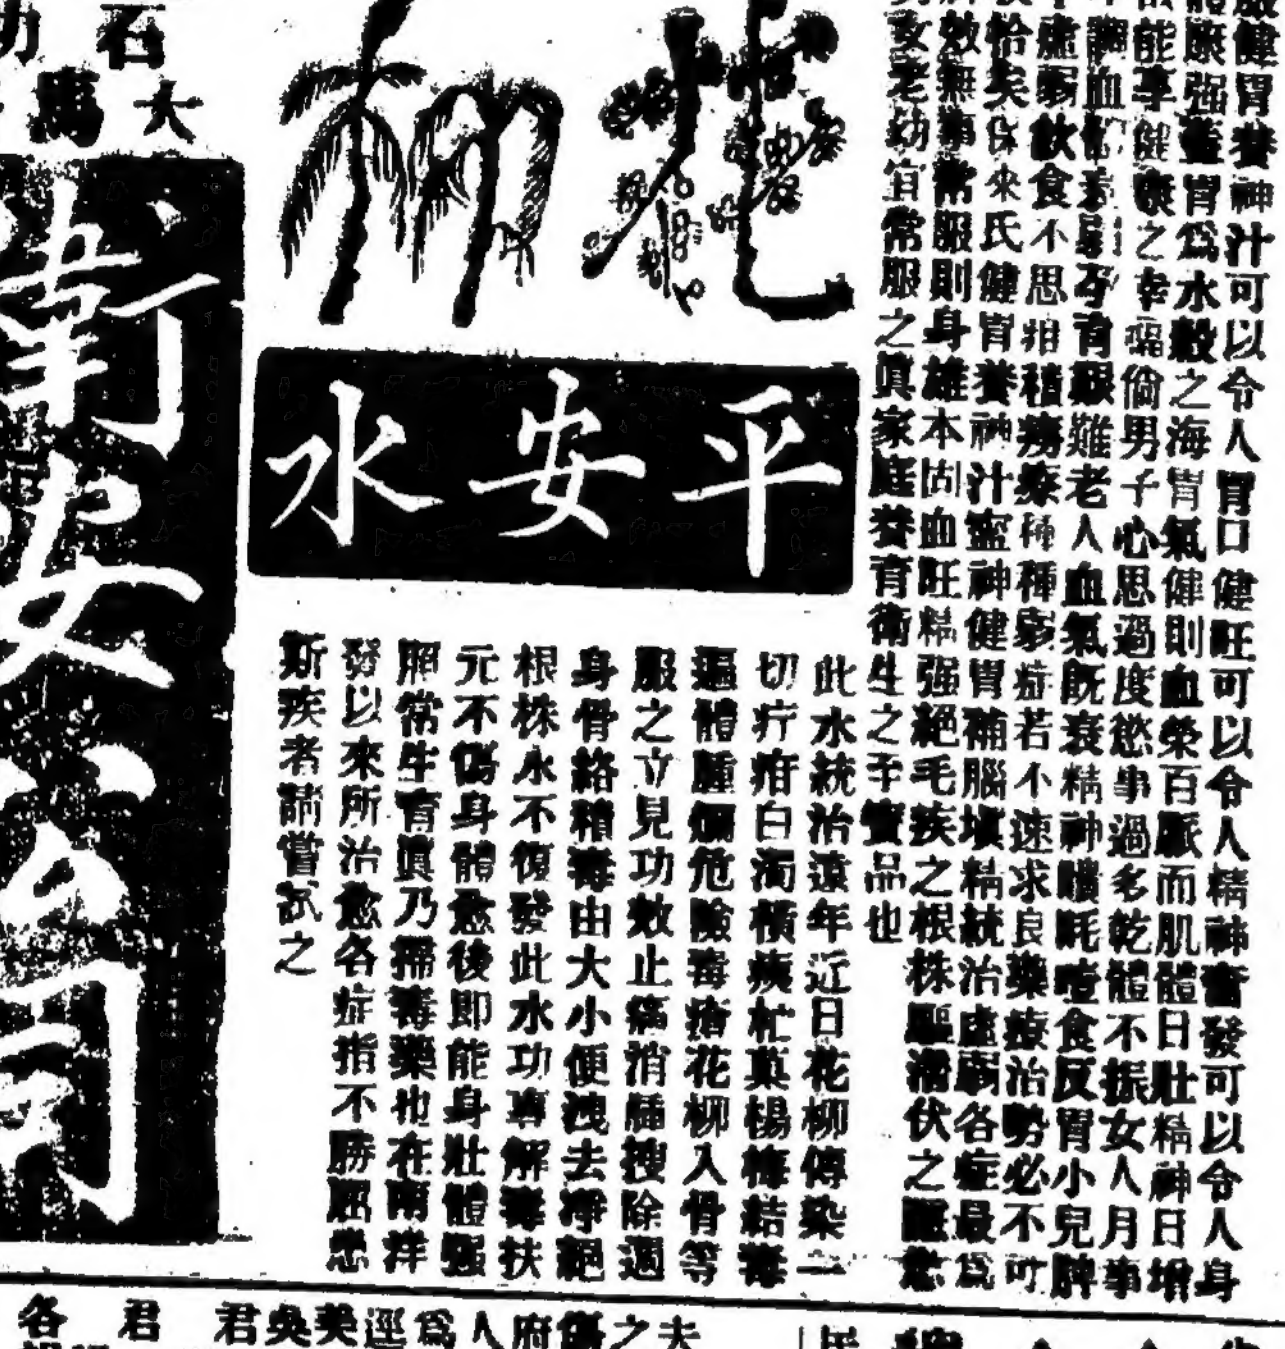 健胃養神汁可以令人胃口健旺可以令人精神奮發可以令人身
體康强蓋胃爲水穀之海胃氣健則血榮百脈而肌體日壯精神日增
能享健康之幸福倘男子心思過度慾事過多乾體不振女人月事
調血 育艱難老人血氣既衰精神矇眊噎食反胃小兒脾
虛弱飲食不思疳積癆瘵種種窮症若不速求良藥療治勢必不可
恰矣 來氏健胃養神汁靈神健胃補腦塡精統治虛弱各症最爲
效無事常服則身雄本固血旺精强絕毛疾之根株驅 伏之
女老幼宜常服之眞家庭養育衛生之 寶品也
花柳
平安水
此水統治遠年近日花柳傳染一
切疔疳白濁橫痃杧菓楊梅結毒
遍體腫爛危險毒瘡花柳入骨等
服之立見功效止痛消腫搜除遍
身骨絡積毒由大小便洩去凈絕
根株永不復發此水功專解毒扶
元不傷身體愈後即能身壯體强
照常生育眞乃掃毒藥也在南洋
發以來所治愈各症指不勝屈患
斯疾者請嘗試之
石
大
安公司
夫之 府人爲逕美吳君
君
各